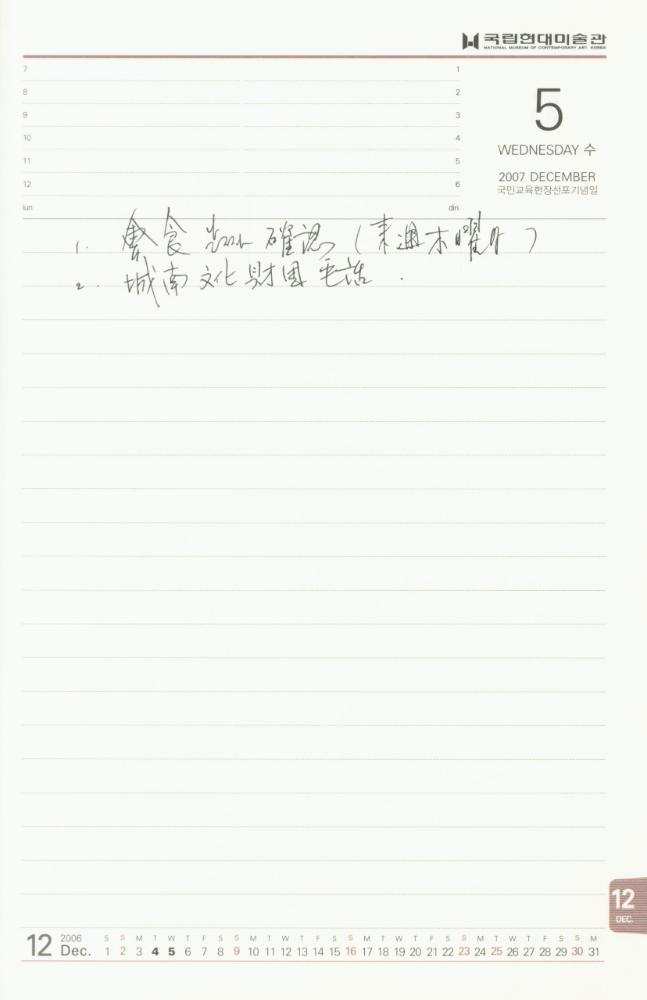 국립현대미술관
NATIONAL MUSEUM OF CONTEMPORARY ART, KOREA
7 1
8 2
9 3
10 4
11 5
12 6
lun din
5
WEDNESDAY 수
2007 DECEMBER
국민교육헌장선포기념일
1. 會食 確認 (來週木曜)
2. 城南文化財団 電話.
12
DEC.
12 2006 Dec.
S S M T W T F S S M T W T F S S M T W T F S S M T W T F S S M
1 2 3 4 5 6 7 8 9 10 11 12 13 14 15 16 17 18 19 20 21 22 23 24 25 26 27 28 29 30 31